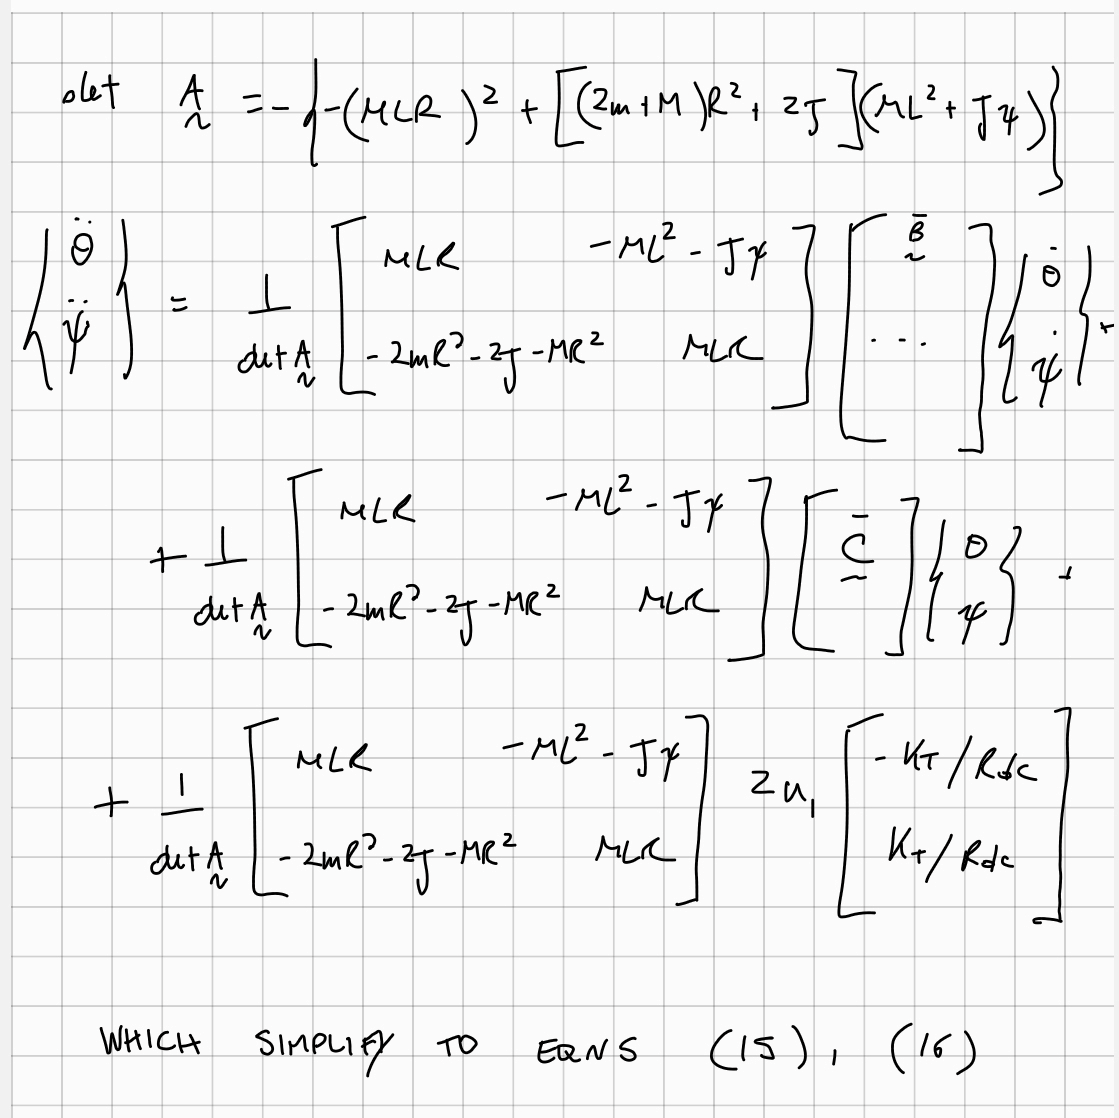 det A = - { -(MLR)² + [(2m+M)R² + 2J](ML² + Jψ) }
{ θ̈ ψ̈ } = 1/det A [ MLR   -ML² - Jψ ; -2mR² - 2J - MR²   MLR ] [ B̄ ... ] { θ̇ ψ̇ } +
+ 1/det A [ MLR   -ML² - Jψ ; -2mR² - 2J - MR²   MLR ] [ C̄ ] { θ ψ } +
+ 1/det A [ MLR   -ML² - Jψ ; -2mR² - 2J - MR²   MLR ] 2u₁ [ -KT/Rdc ; KT/Rdc ]
WHICH SIMPLIFY TO EQNS (15), (16)